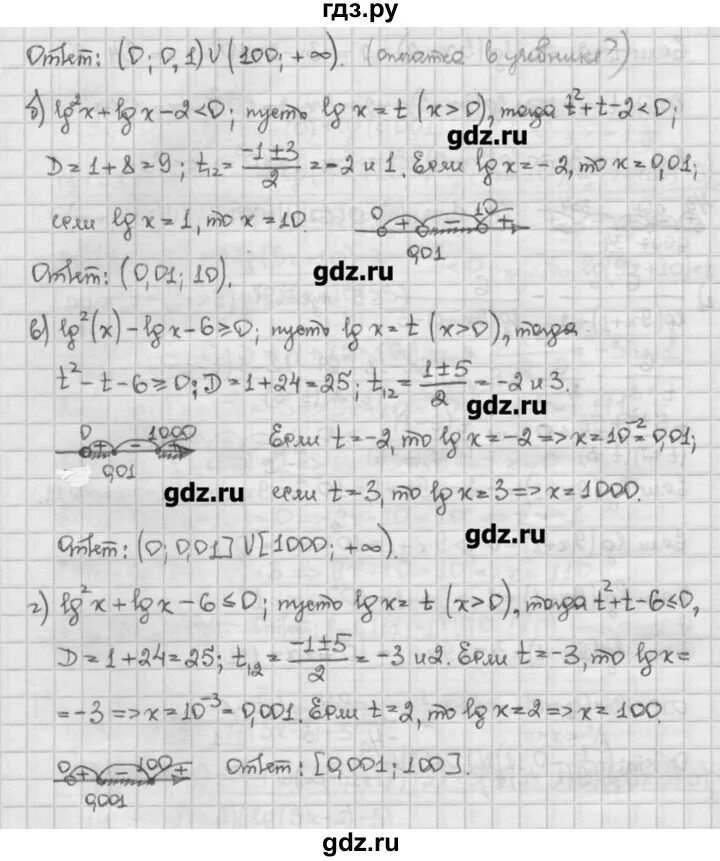 гдз.ру
Ответ: (0; 0,1) ∪ (100; +∞). (опечатка в учебнике?)
б) lg²x + lg x − 2 < 0; пусть lg x = t (x > 0), тогда t² + t − 2 < 0;
gdz.ru
D = 1 + 8 = 9; t₁₂ = (−1 ± 3)/2 = −2 и 1. Если lg x = −2, то x = 0,01;
если lg x = 1, то x = 10.
0 + − 10 +
0,01
Ответ: (0,01; 10).
gdz.ru
в) lg²(x) − lg x − 6 ≥ 0; пусть lg x = t (x > 0), тогда
t² − t − 6 ≥ 0; D = 1 + 24 = 25; t₁₂ = (1 ± 5)/2 = −2 и 3.
gdz.ru
0 + − 1000 +
0,01
Если t = −2, то lg x = −2 => x = 10⁻² = 0,01;
gdz.ru
если t = 3, то lg x = 3 => x = 1000.
gdz.ru
Ответ: (0; 0,01] ∪ [1000; +∞).
г) lg²x + lg x − 6 ≤ 0; пусть lg x = t (x > 0), тогда t² + t − 6 ≤ 0,
D = 1 + 24 = 25; t₁₂ = (−1 ± 5)/2 = −3 и 2. Если t = −3, то lg x =
= −3 => x = 10⁻³ = 0,001. Если t = 2, то lg x = 2 => x = 100.
0 + − 100 +
0,001
Ответ: [0,001; 100].
gdz.ru
gdz.ru